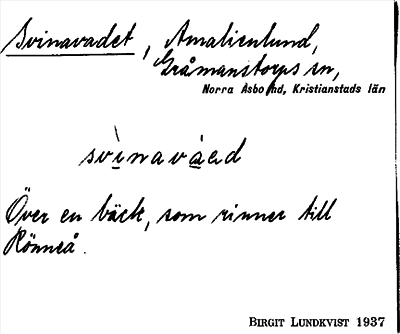 Svinavadet, Amalienlund,
Gråmanstorps sn,
Norra Åsbo hd, Kristianstads län
svìnavàєd
Över en bäck, som rinner till
Rönneå.
BIRGIT LUNDKVIST 1937